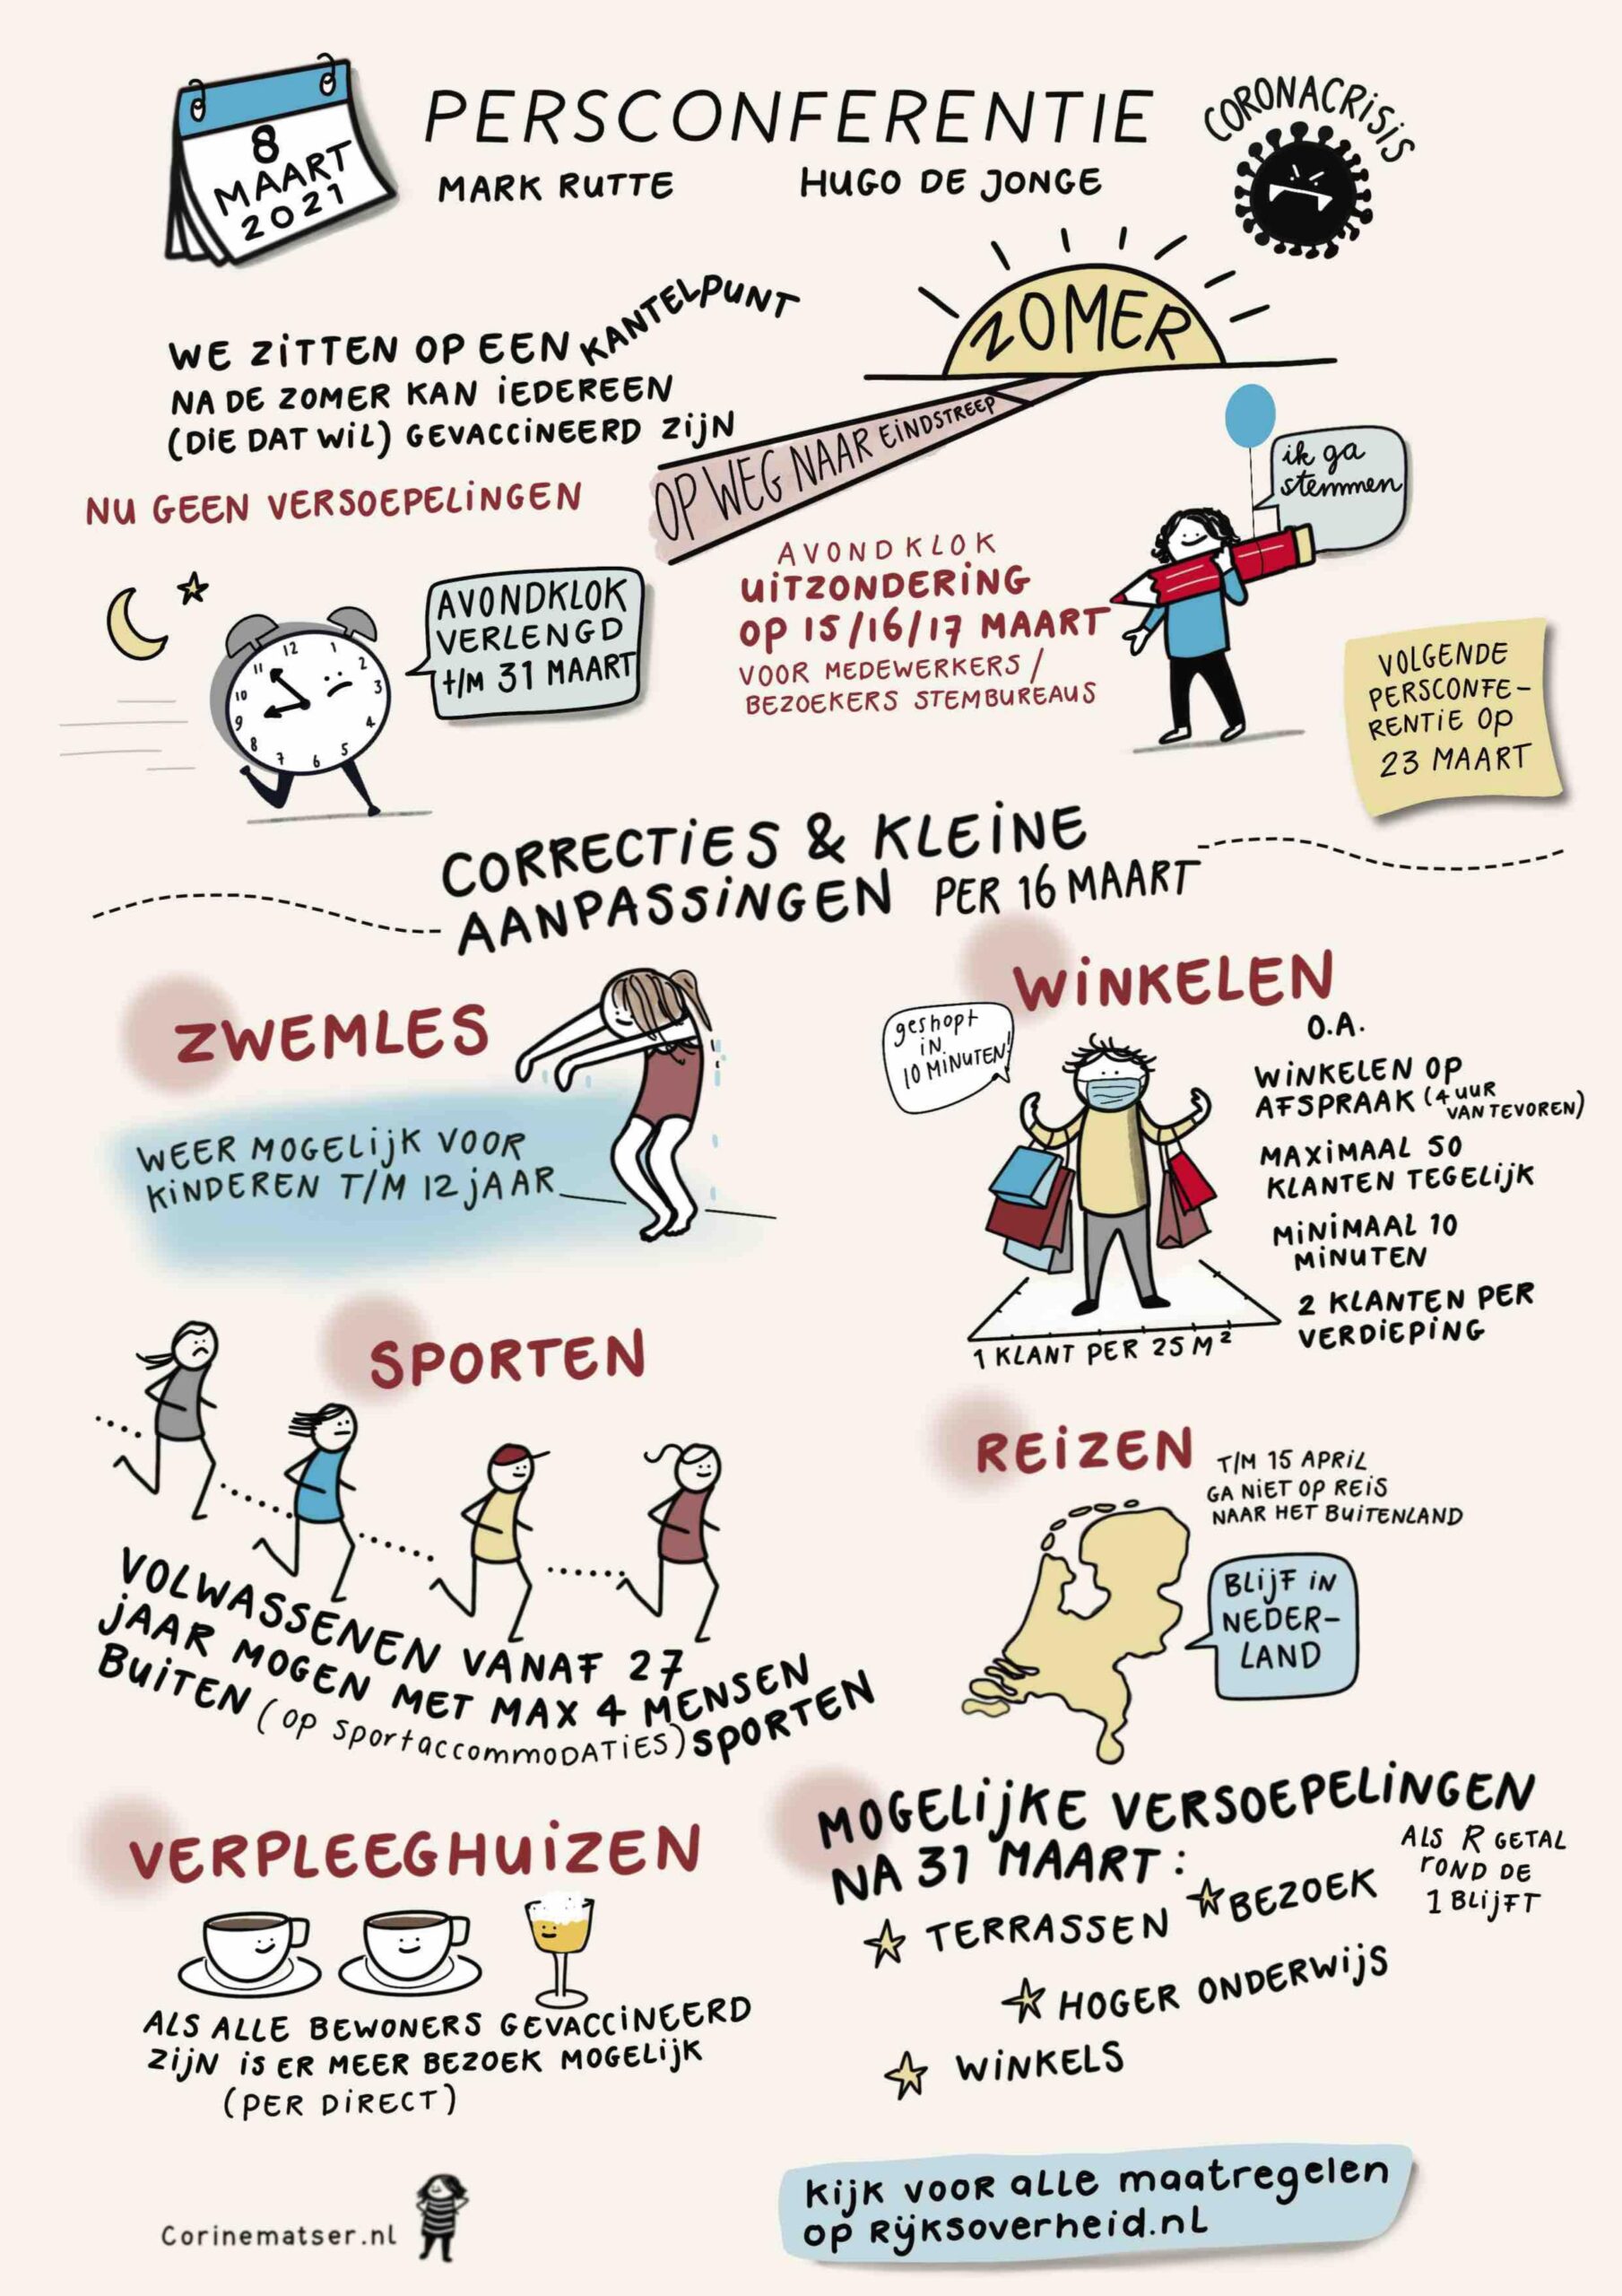 8
MAART
2021
PERSCONFERENTIE
MARK RUTTE
HUGO DE JONGE
CORONACRISIS
WE ZITTEN OP EEN KANTELPUNT
NA DE ZOMER KAN IEDEREEN
(DIE DAT WIL) GEVACCINEERD ZIJN
NU GEEN VERSOEPELINGEN
ZOMER
OP WEG NAAR EINDSTREEP
ik ga
stemmen
AVONDKLOK
VERLENGD
t/m 31 MAART
12
1
2
3
4
5
6
7
8
9
10
11
AVONDKLOK
UITZONDERING
OP 15/16/17 MAART
VOOR MEDEWERKERS /
BEZOEKERS STEMBUREAUS
VOLGENDE
PERSCONFE-
RENTIE OP
23 MAART
CORRECTIES & KLEINE
AANPASSINGEN PER 16 MAART
ZWEMLES
WEER MOGELIJK VOOR
KINDEREN T/M 12 JAAR
WINKELEN
O.A.
geshopt
IN
10 MINUTEN!
WINKELEN OP
AFSPRAAK (4 UUR
VAN TEVOREN)
MAXIMAAL 50
KLANTEN TEGELIJK
MINIMAAL 10
MINUTEN
2 KLANTEN PER
VERDIEPING
1 KLANT PER 25 M²
SPORTEN
VOLWASSENEN VANAF 27
JAAR MOGEN MET MAX 4 MENSEN
BUITEN (OP SPORTACCOMMODATIES) SPORTEN
REIZEN
T/M 15 APRIL
GA NIET OP REIS
NAAR HET BUITENLAND
BLIJF IN
NEDER-
LAND
VERPLEEGHUIZEN
ALS ALLE BEWONERS GEVACCINEERD
ZIJN IS ER MEER BEZOEK MOGELIJK
(PER DIRECT)
MOGELIJKE VERSOEPELINGEN
NA 31 MAART:
ALS R GETAL
ROND DE
1 BLIJFT
TERRASSEN
BEZOEK
HOGER ONDERWIJS
WINKELS
Corinematser.nl
kijk voor alle maatregelen
op Rijksoverheid.nl